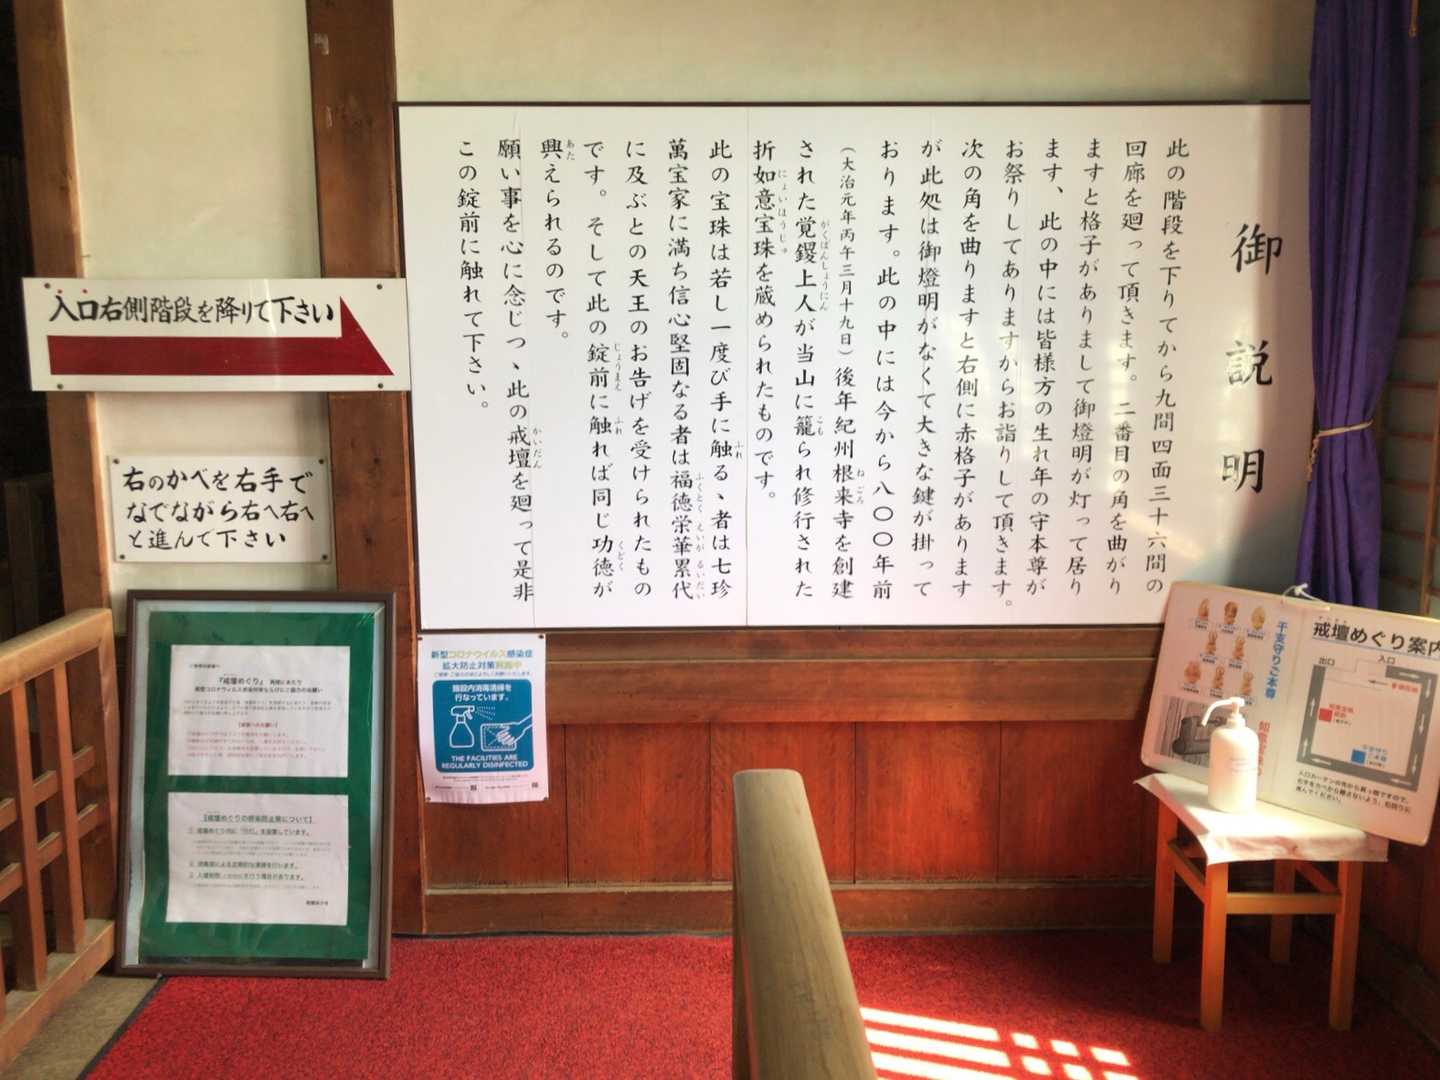 御説明
此の階段を下りてから九間四面三十六間の
回廊を廻って頂きます。二番目の角を曲がり
ますと格子がありまして御燈明が灯って居り
ます、此の中には皆様方の生れ年の守本尊が
お祭りしてありますからお詣りして頂きます。
次の角を曲りますと右側に赤格子があります
が此処は御燈明がなくて大きな鍵が掛って
おります。此の中には今から八〇〇年前
(大治元年丙午三月十九日)後年紀州根来寺を創建
ねごろ
された覚鑁上人が当山に籠られ修行された
がくばんしょうにん
こも
折如意宝珠を蔵められたものです。
にょいほうじゅ
此の宝珠は若し一度び手に触るゝ者は七珍
ふれ
萬宝家に満ち信心堅固なる者は福徳栄華累代
ふくとく えいが るいだい
に及ぶとの天王のお告げを受けられたもの
です。そして此の錠前に触れば同じ功徳が
じょうまえ
ふれ
くどく
興えられるのです。
あた
願い事を心に念じつゝ此の戒壇を廻って是非
かいだん
この錠前に触れて下さい。
入口右側階段を降りて下さい
右のかべを右手で
なでながら右へ右へ
と進んで下さい
『戒壇めぐり』 再開にあたり
新型コロナウィルス感染対策ならびにご協力のお願い
【戒壇めぐりの感染防止策について】
新型コロナウイルス感染症
拡大防止対策実施中
施設内消毒清掃を
行なっています。
THE FACILITIES ARE
REGULARLY DISINFECTED
干支守りご本尊
戒壇めぐり案内
出口
入口